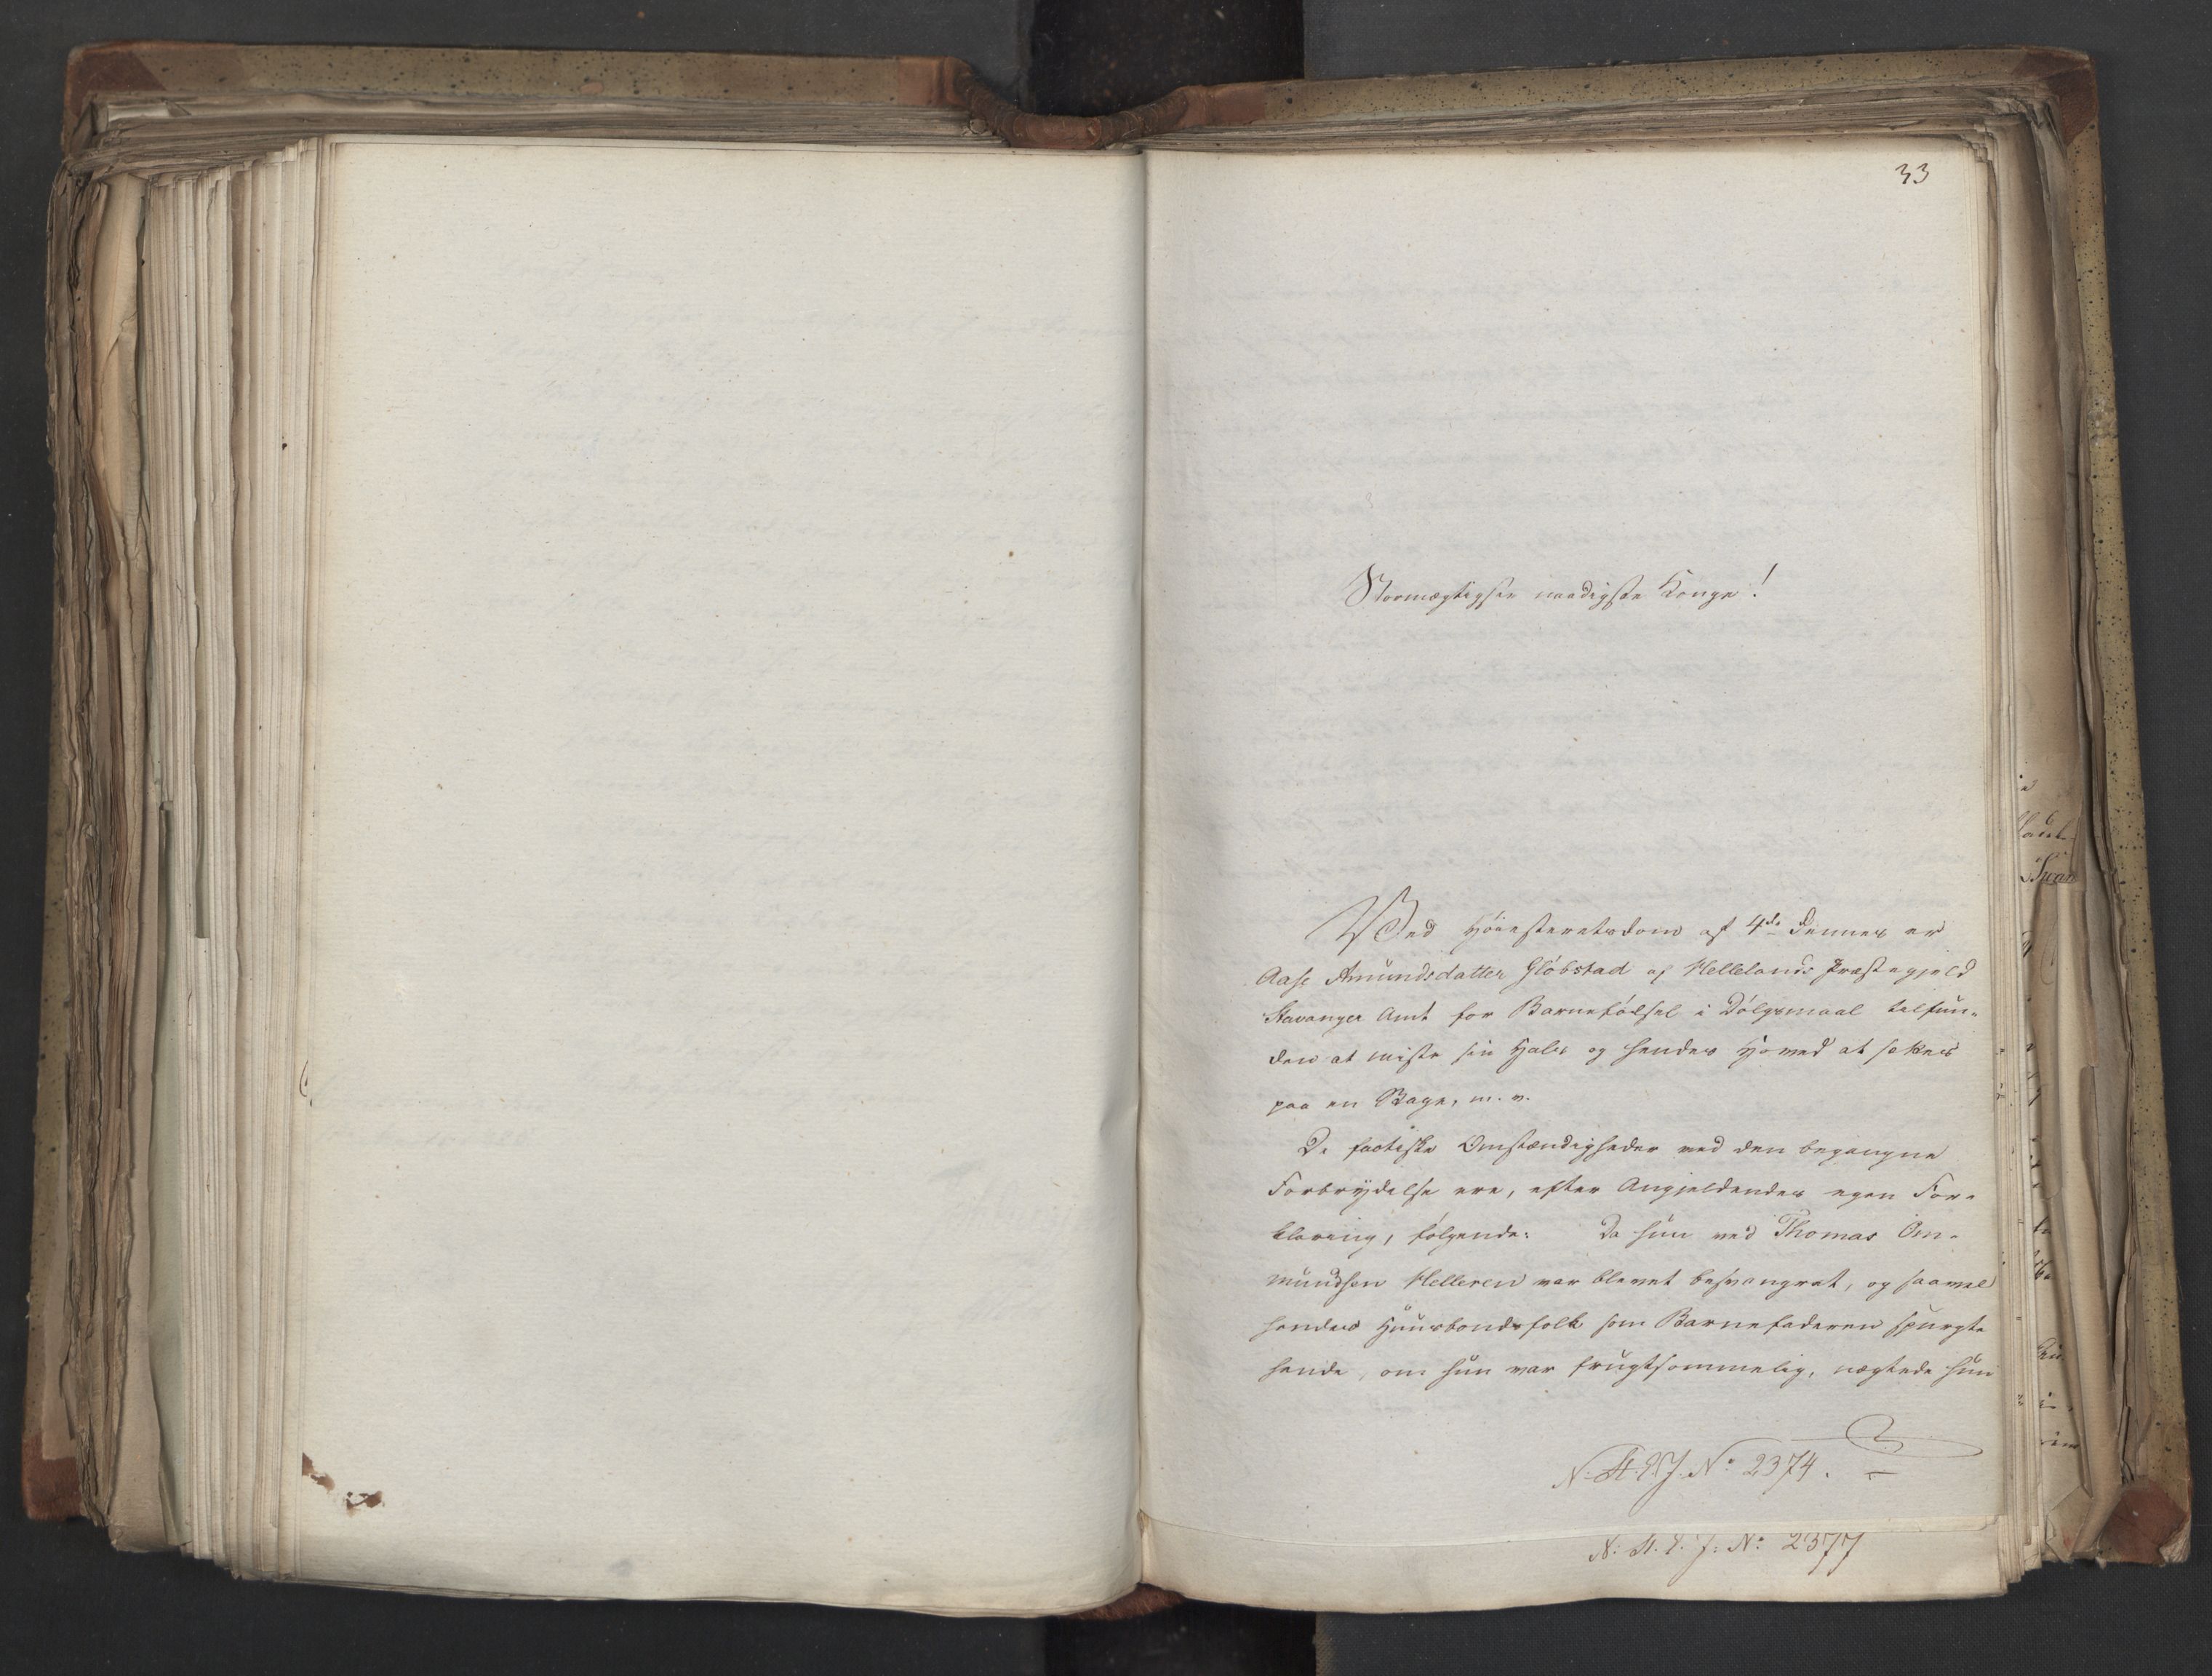 33
Stormægtigste naadigste Konge!
Ved Høiesteretsdom af 4de dennes er
Aase Amundsdatter Glöbstad af Hellelands Præstegjeld
Stavanger Amt for Barnefödsel i Dölgsmaal tilfun-
den at miste sin Hals og hendes Hoved at sættes
paa en Stage, m. v.
De factiske Omstændigheder ved den begangne
Forbrydelse ere, efter Angjeldendes egen For-
klaring, følgende: Da hun ved Thomas Om-
mundsen Helleren var blevet besvangret, og saavel
hendes Huusbondsfolk som Barnefaderen spurgte
hende, om hun var frugtsommelig, nægtede hun
N. St. E. J. No 2374.
N: St. E. J: No: 2377